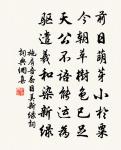 前日萌芽小於粟
今朝草樹色已足
天公不語能運為
驅遣羲和染新綠
施肩吾春日美新綠
詞